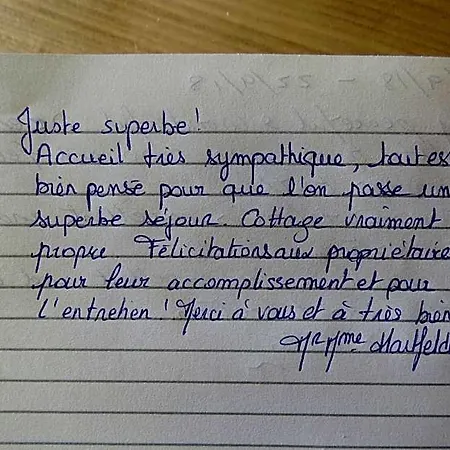 Juste superbe!
Accueil très sympathique, tout es
bien pensé pour que l'on passe un
superbe séjour. Cottage vraiment
propre Félicitations aux propriétaire
pour leur accomplissement et pour
l'entretien ! Merci à vous et à très bien
Mr Mme